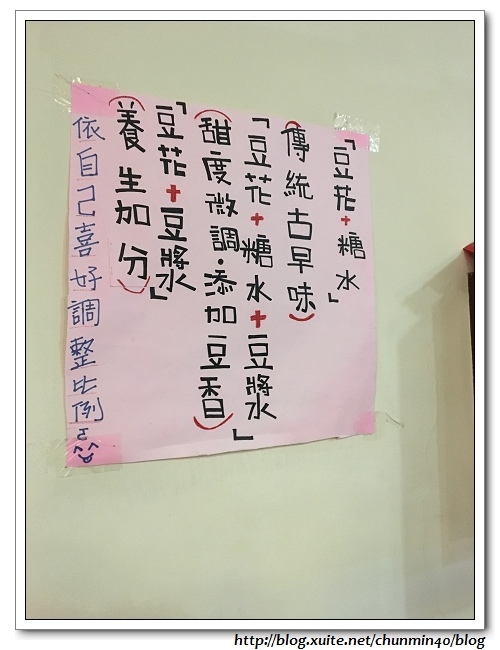 「豆花+糖水」
(傳統古早味)
「豆花+糖水+豆漿」
(甜度微調·添加豆香)
「豆花+豆漿」
(養生加分)
依自己喜好調整比例
http://blog.xuite.net/chunmin40/blog